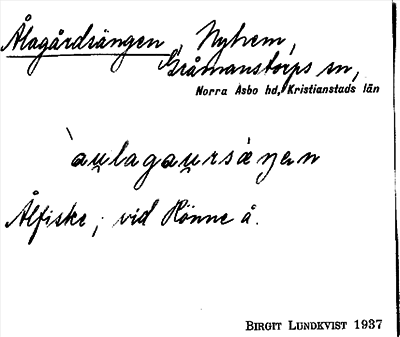 Ålagårdsängen, Nyhem,
Gråmanstorps sn,
Norra Åsbo hd, Kristianstads län
`au̯lagau̯rsàŋan
Ålfiske, vid Rönne å.
BIRGIT LUNDKVIST 1937